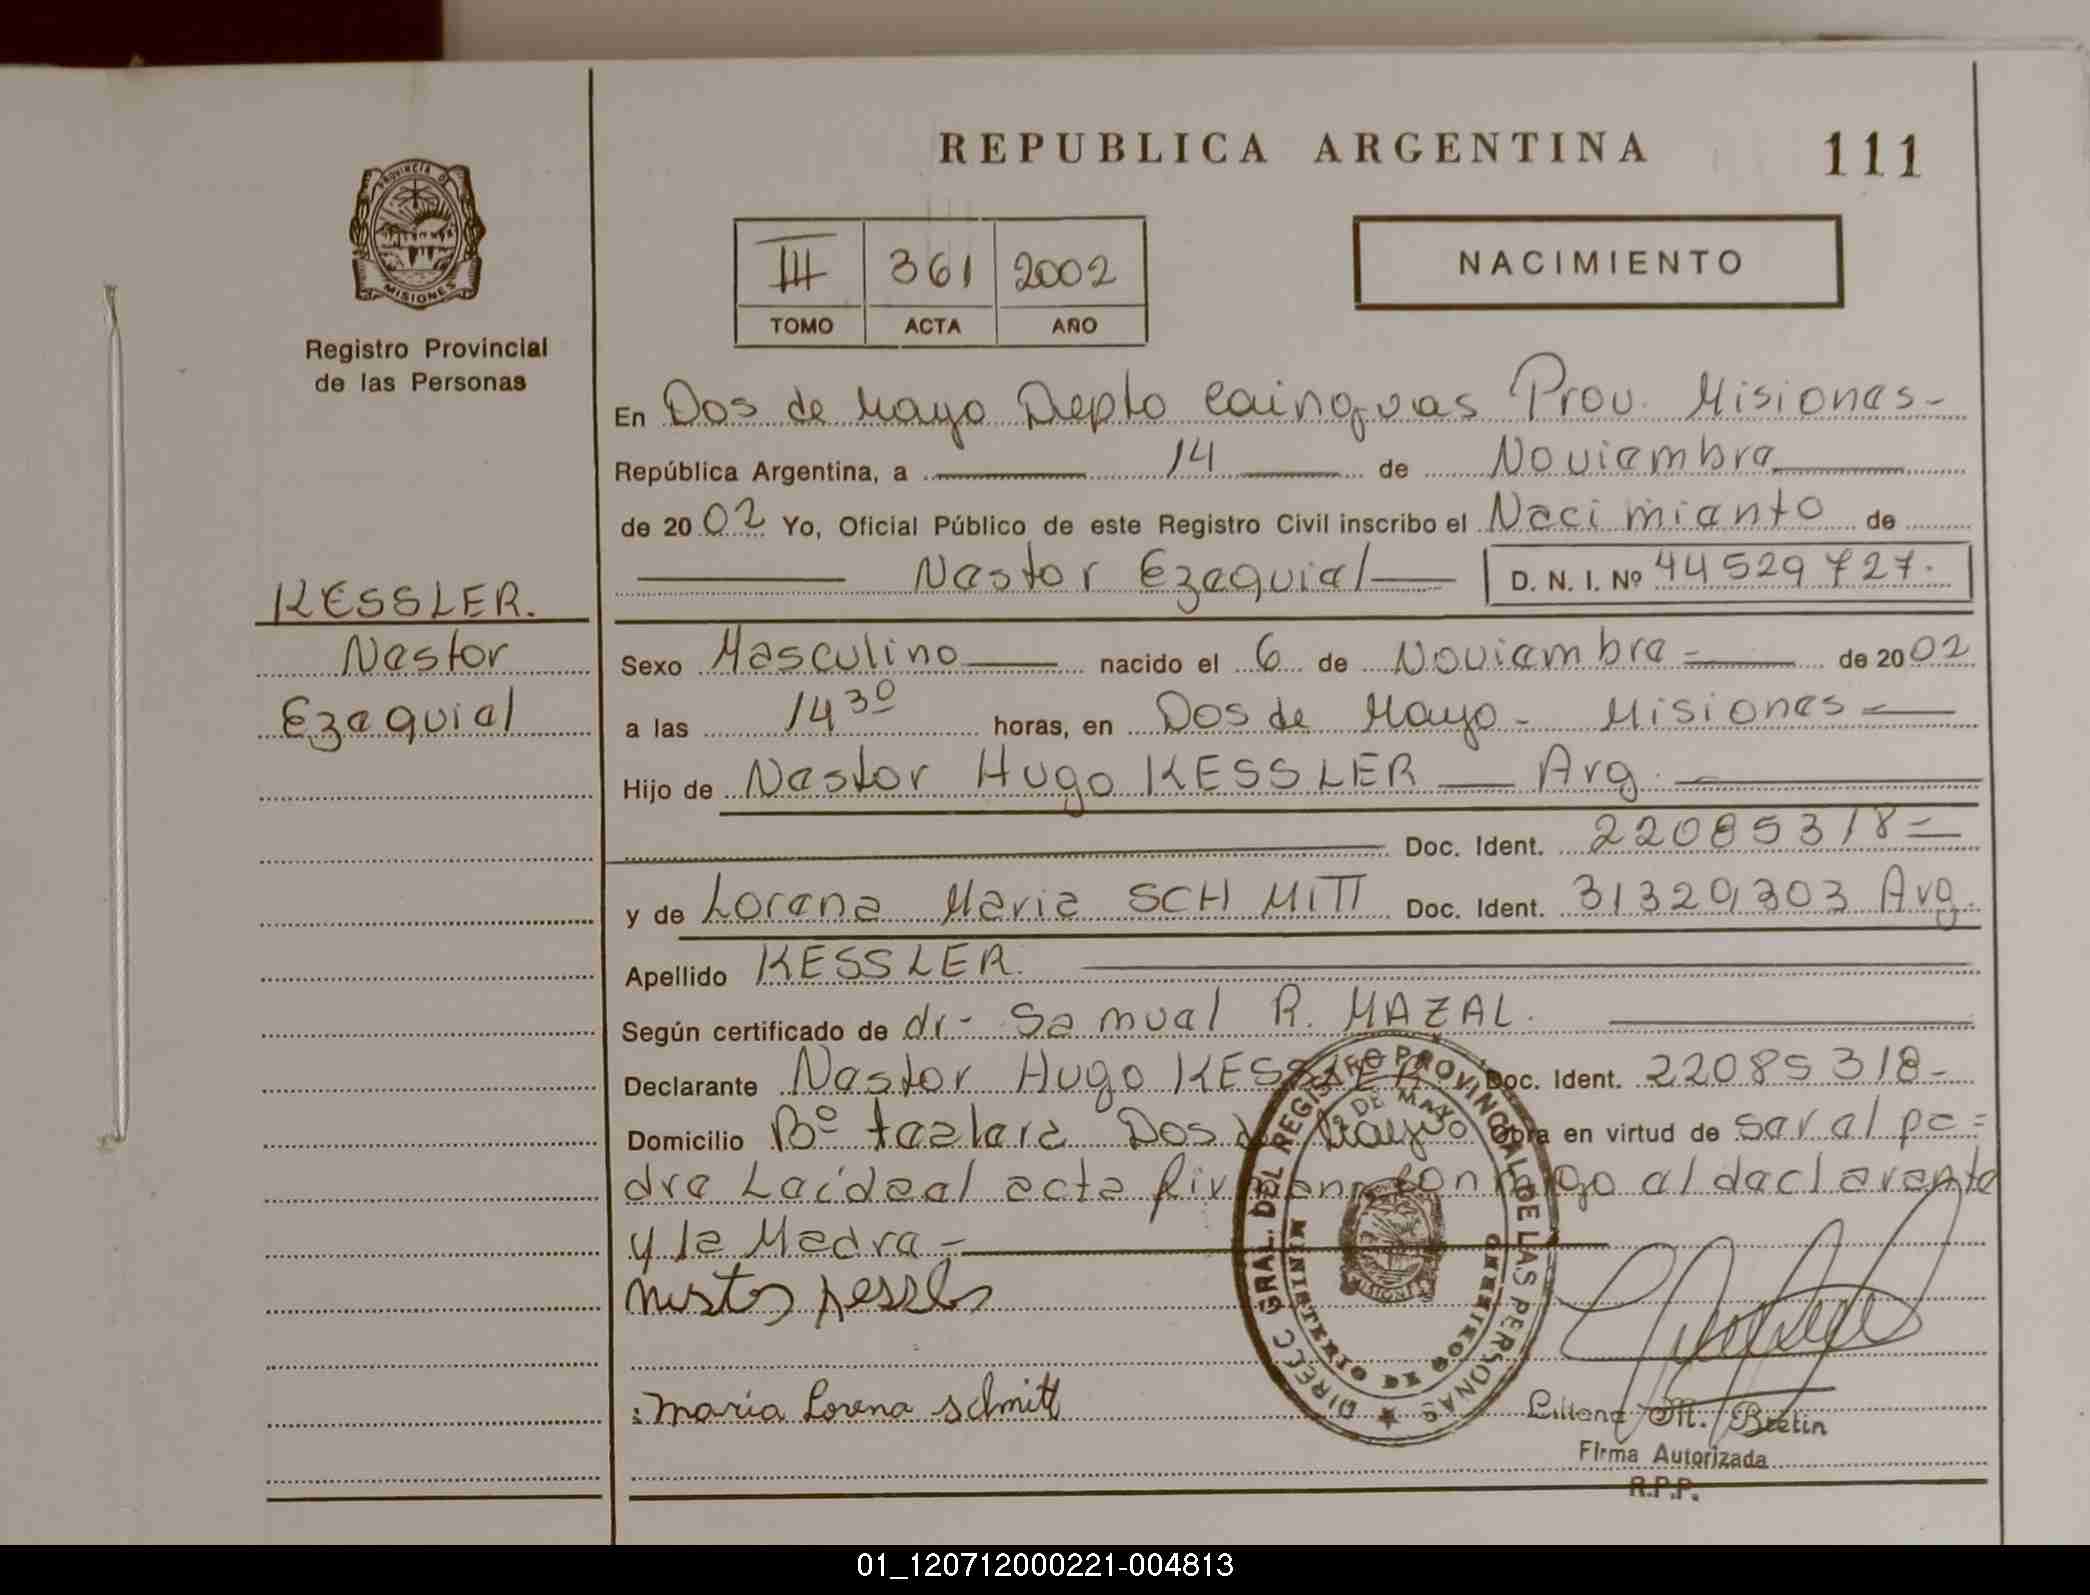 REPUBLICA ARGENTINA 111
PROVINCIA DE MISIONES
Registro Provincial
de las Personas
III 361 2002
TOMO ACTA AÑO
NACIMIENTO
En Dos de Mayo Depto Cainguas Prov. Misiones-
República Argentina, a 14 de Noviembre
de 2002 Yo, Oficial Público de este Registro Civil inscribo el Nacimiento de
Nestor Ezequiel D. N. I. Nº 44529727.
KESSLER.
Nestor
Ezequiel
Sexo Masculino nacido el 6 de Noviembre - de 2002
a las 14 30 horas, en Dos de Mayo - Misiones -
Hijo de Nestor Hugo KESSLER Arg.
Doc. Ident. 22085318 =
y de Lorena Maria SCHMITT Doc. Ident. 31329303 Arg.
Apellido KESSLER.
Según certificado de dr- Samuel R. MAZAL.
Declarante Nestor Hugo KESSLER Doc. Ident. 22085318-
Domicilio Bº Dos de Mayo Obra en virtud de ser el pa=
dre Leída el acta firman conmigo el declarante
y la Madre -
María Lorena Schmitt
DIRECC GRAL. DEL REGISTRO PROVINCIAL DE LAS PERSONAS
2 DE MAYO
MINISTERIO DE GOBIERNO
MISIONES
Liliana M. Bretin
Firma Autorizada
R.P.P.
01_120712000221-004813